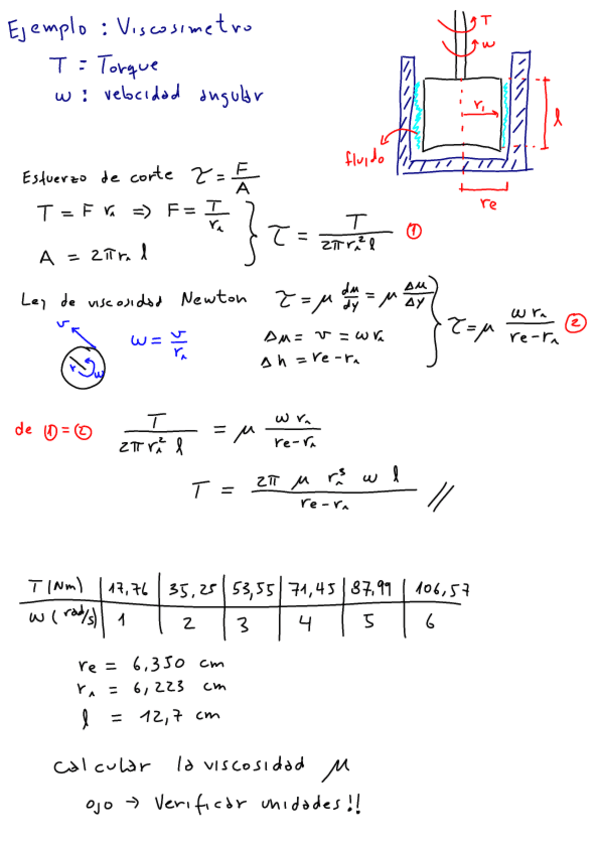 Ejemplo : Viscosimetro
T = Torque
ω : velocidad angular
T
ω
r₁
l
fluido
re
Esfuerzo de corte τ = F/A
T = F r₁ ⇒ F = T/r₁
A = 2π r₁ l
τ = T/(2π r₁² l) ①
Ley de viscosidad Newton τ = μ du/dy = μ Δu/Δy
v
r
ω
ω = v/r₁
Δu = v = ω r₁
Δh = re - r₁
τ = μ ω r₁/(re - r₁) ②
de ① = ② T/(2π r₁² l) = μ ω r₁/(re - r₁)
T = 2π μ r₁³ ω l/(re - r₁) //
T (Nm) | 17,76 | 35,25 | 53,55 | 71,45 | 87,99 | 106,57
ω (rad/s) | 1 | 2 | 3 | 4 | 5 | 6
re = 6,350 cm
r₁ = 6,223 cm
l = 12,7 cm
calcular la viscosidad μ
ojo → Verificar unidades!!